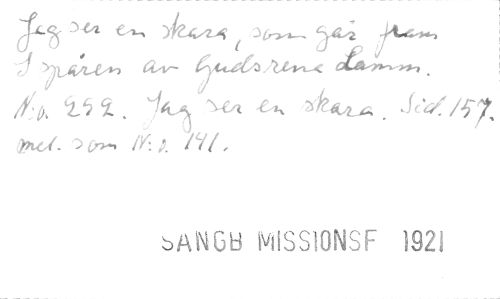 Jag ser en skara, som går fram
I spåren av Guds rena Lamm.
N:o. 292. Jag ser en skara. Sid. 157.
mel. som N:o. 141.
SANGB MISSIONSF 1921